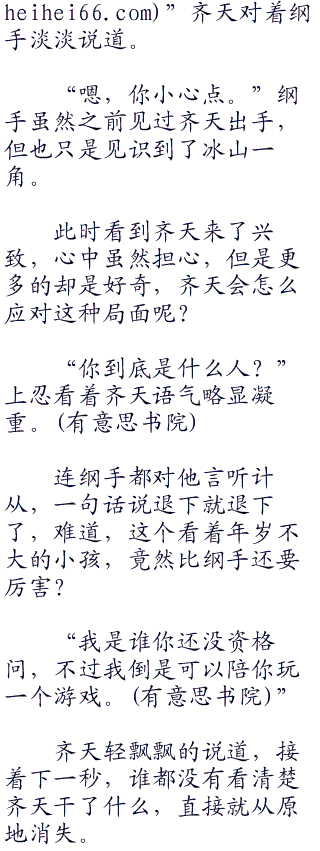 heihei66.com)”齐天对着纲
手淡淡说道。
“嗯，你小心点。”纲
手虽然之前见过齐天出手，
但也只是见识到了冰山一
角。
此时看到齐天来了兴
致，心中虽然担心，但是更
多的却是好奇，齐天会怎么
应对这种局面呢？
“你到底是什么人？”
上忍看着齐天语气略显凝
重。(有意思书院)
连纲手都对他言听计
从，一句话说退下就退下
了，难道，这个看着年岁不
大的小孩，竟然比纲手还要
厉害？
“我是谁你还没资格
问，不过我倒是可以陪你玩
一个游戏。(有意思书院)”
齐天轻飘飘的说道，接
着下一秒，谁都没有看清楚
齐天干了什么，直接就从原
地消失。